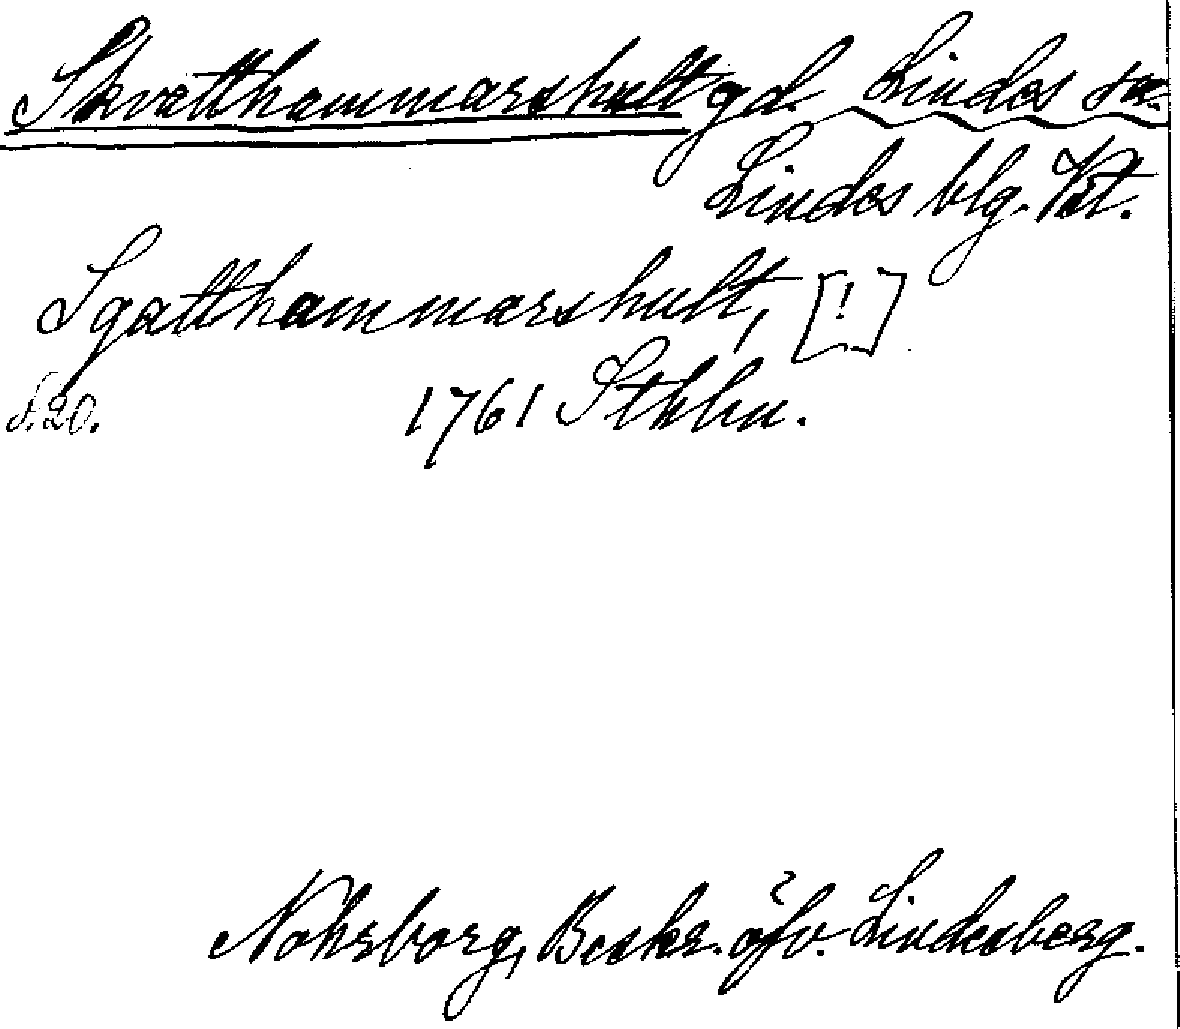 Skvatthammarshult gd. Lindes sn.
Lindes blg. Vst.
Sqatthammarshult, [!]
s. 20. 1761 Sthlm.
Nohrborg, Beskr. öfv. Lindesberg.